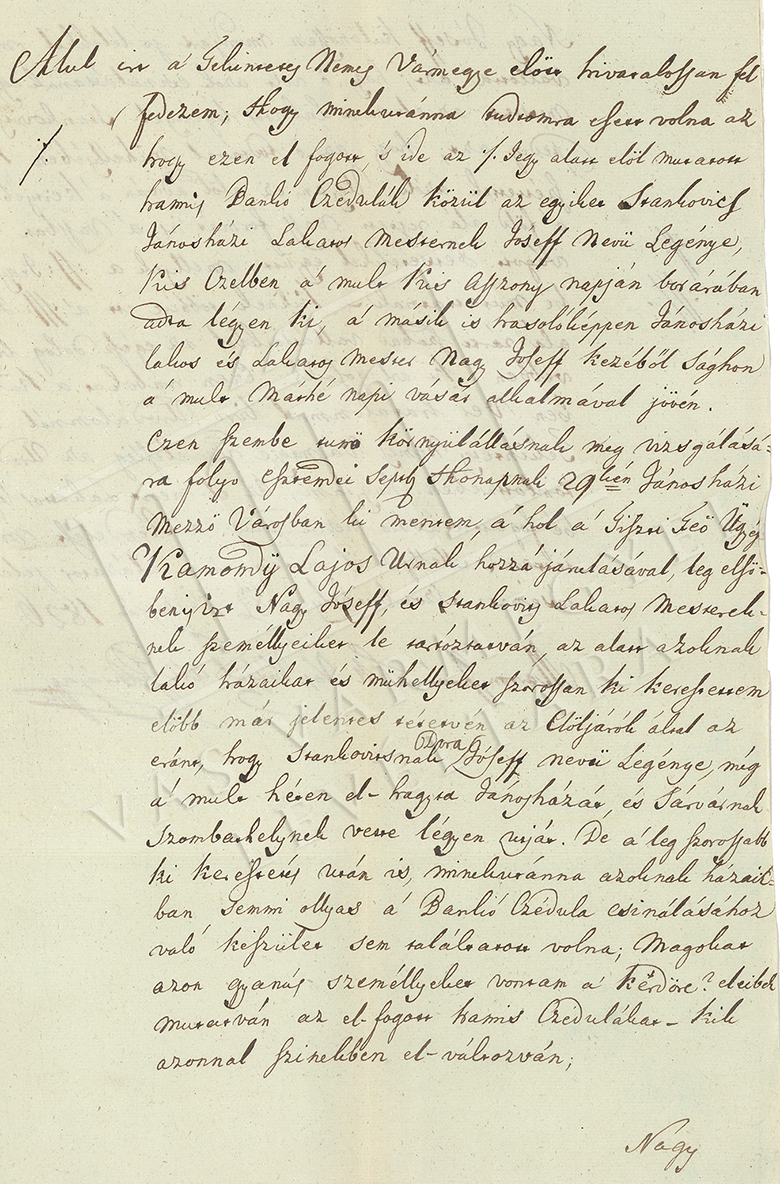 Alul irt a' Tekintetes Nemes Vármegye előtt hivatalossan fel
fedezem; Hogy minekutánna tudtomra esett volna az
./.
hogy ezen el fogott, 's ide az ./. Jegy alatt elöl mutatott
hamis Bankó Czedulák közül az egyiket Stankovics
Jánosházi Lakatos Mesternek Jóseff Nevü Legénye,
Kis Czelben á mult Kis Aszszony napján borárában
adta légyen ki, á másik is hasolóképpen Jánosházi
lakos és Lakatos mester Nagy Jóseff kezéből Sághon
á mult Máthé napi vásár alkalmával jövén.
Ezen szembe tünő környülállásnak meg vizsgálásá-
ra folyo esztendei Septb Hónapnak 29kén Jánosházi
Mezző Városban ki mentem, á hol á Tiszti Feö Ügyész
Kamondÿ Lajos Urnak hozzá járulásával, leg elsö-
ben is Nagy Jóseff, és Stankovits Lakatos Mesterek-
nek személlyeiket le tartóztatván, az alatt azoknak
lakó házaikat és mühellyeket szorossan ki kerestettem
előbb már jelentés tétetvén az Elöljárók által az
eránt, hogy Stankovitsnak Dora Jóseff nevü Legénye, még
á mult héten el-hagyta Jánosházát, és Sárvárnak
Szombathelynek vette légyen utját. De á leg szorossabb
ki keresés után is, minekutánna azoknak házaik-
ban semmi ollyas á Bankó Czédula csinálásához
való készület sem találtatott volna; Magokat
azon gyanús személlyeket vontam á kérdőre? eleibek
mutatván az el-fogott hamis Czedulákat – kik
azonnal szinekben el-változván;
Nagy